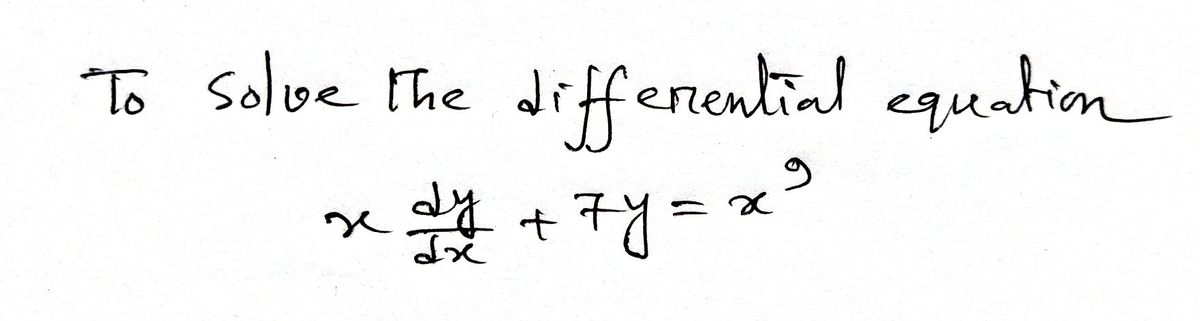 To solve the differential equation
x dy/dx + 7y = x⁹